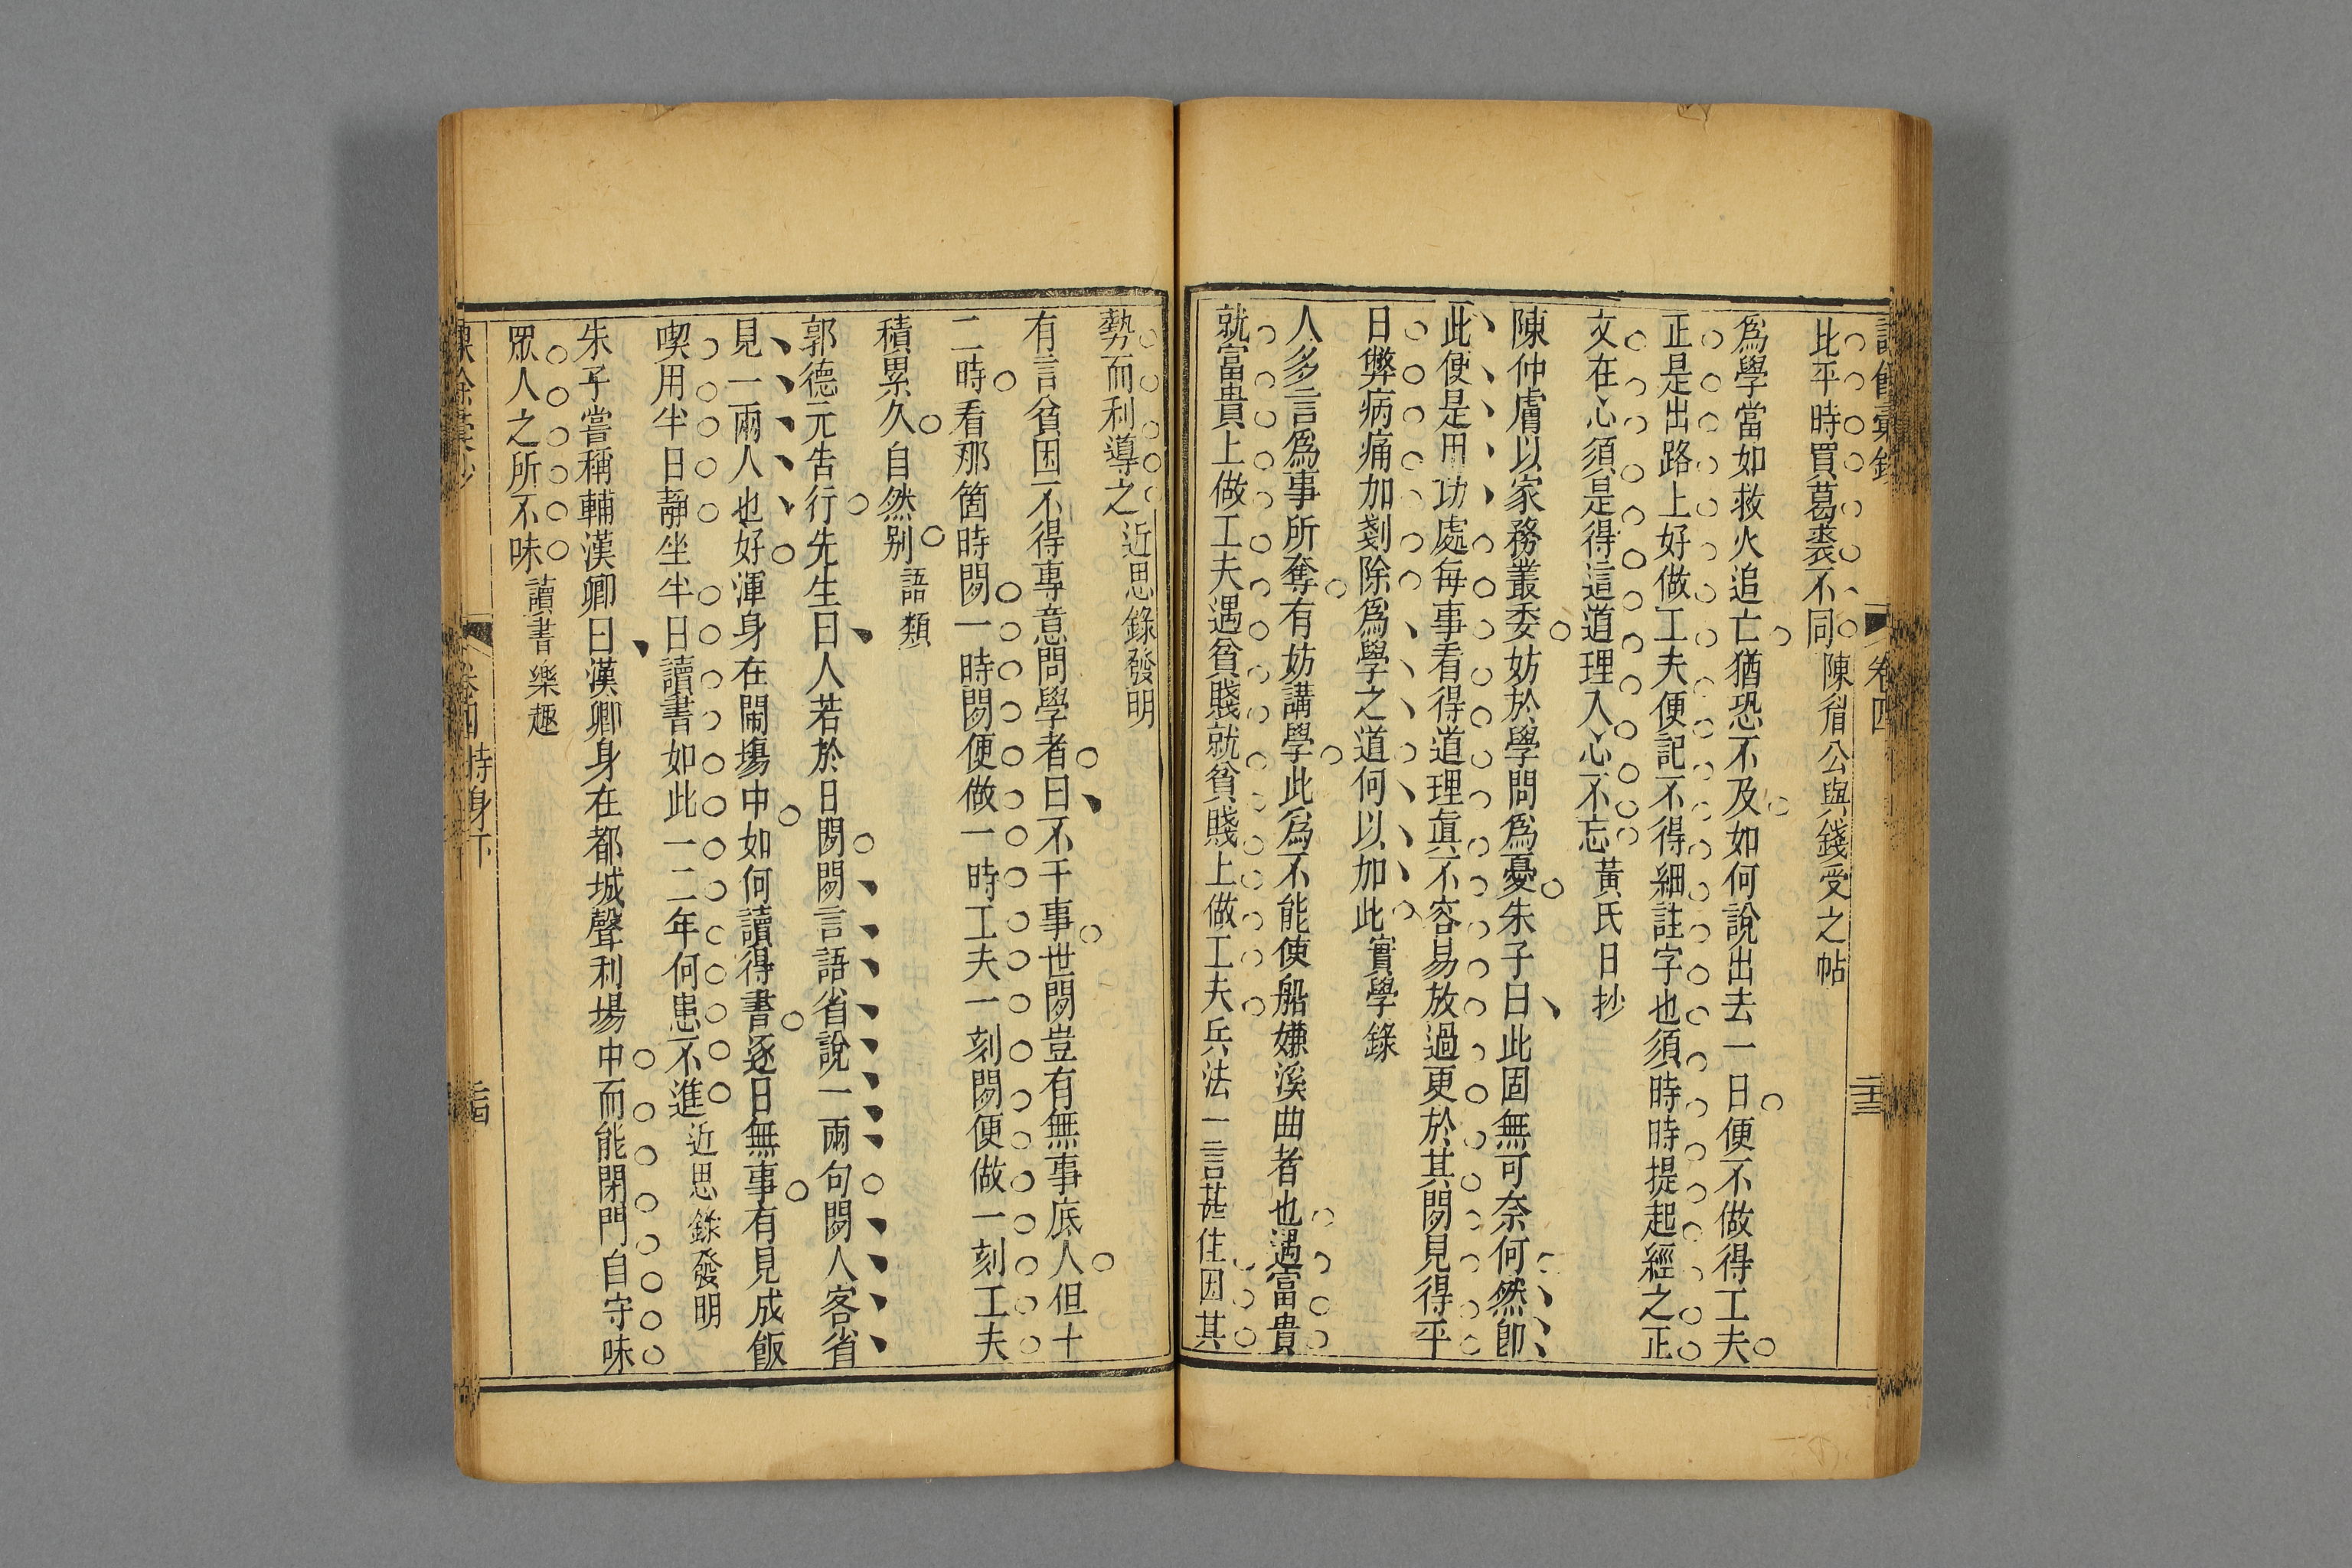 卷四
二十三
比平時買葛裘不同陳眉公與錢受之帖
爲學當如救火追亡猶恐不及如何說出去一日便不做得工夫
正是出路上好做工夫便記不得細註字也須時時提起經之正
文在心須是得這道理入心不忘黃氏日抄
陳仲膚以家務叢委妨於學問爲憂朱子曰此固無可奈何然卽
此便是用功處每事看得道理眞不容易放過更於其閒見得平
日弊病痛加剗除爲學之道何以加此實學錄
人多言爲事所奪有妨講學此爲不能使船嫌溪曲者也遇富貴
就富貴上做工夫遇貧賤就貧賤上做工夫兵法一言甚佳因其
勢而利導之近思錄發明
有言貧困不得專意問學者曰不干事世閒豈有無事底人但十
二時看那箇時閒一時閒便做一時工夫一刻閒便做一刻工夫
積累久自然别語類
郭德元吿行先生曰人若於日閒閒言語省說一兩句閒人客省
見一兩人也好渾身在鬧塲中如何讀得書逐日無事有見成飯
喫用半日靜坐半日讀書如此一二年何患不進近思錄發明
朱子嘗稱輔漢卿曰漢卿身在都城聲利塲中而能閉門自守味
眾人之所不味讀書樂趣
卷四持身下
二十四